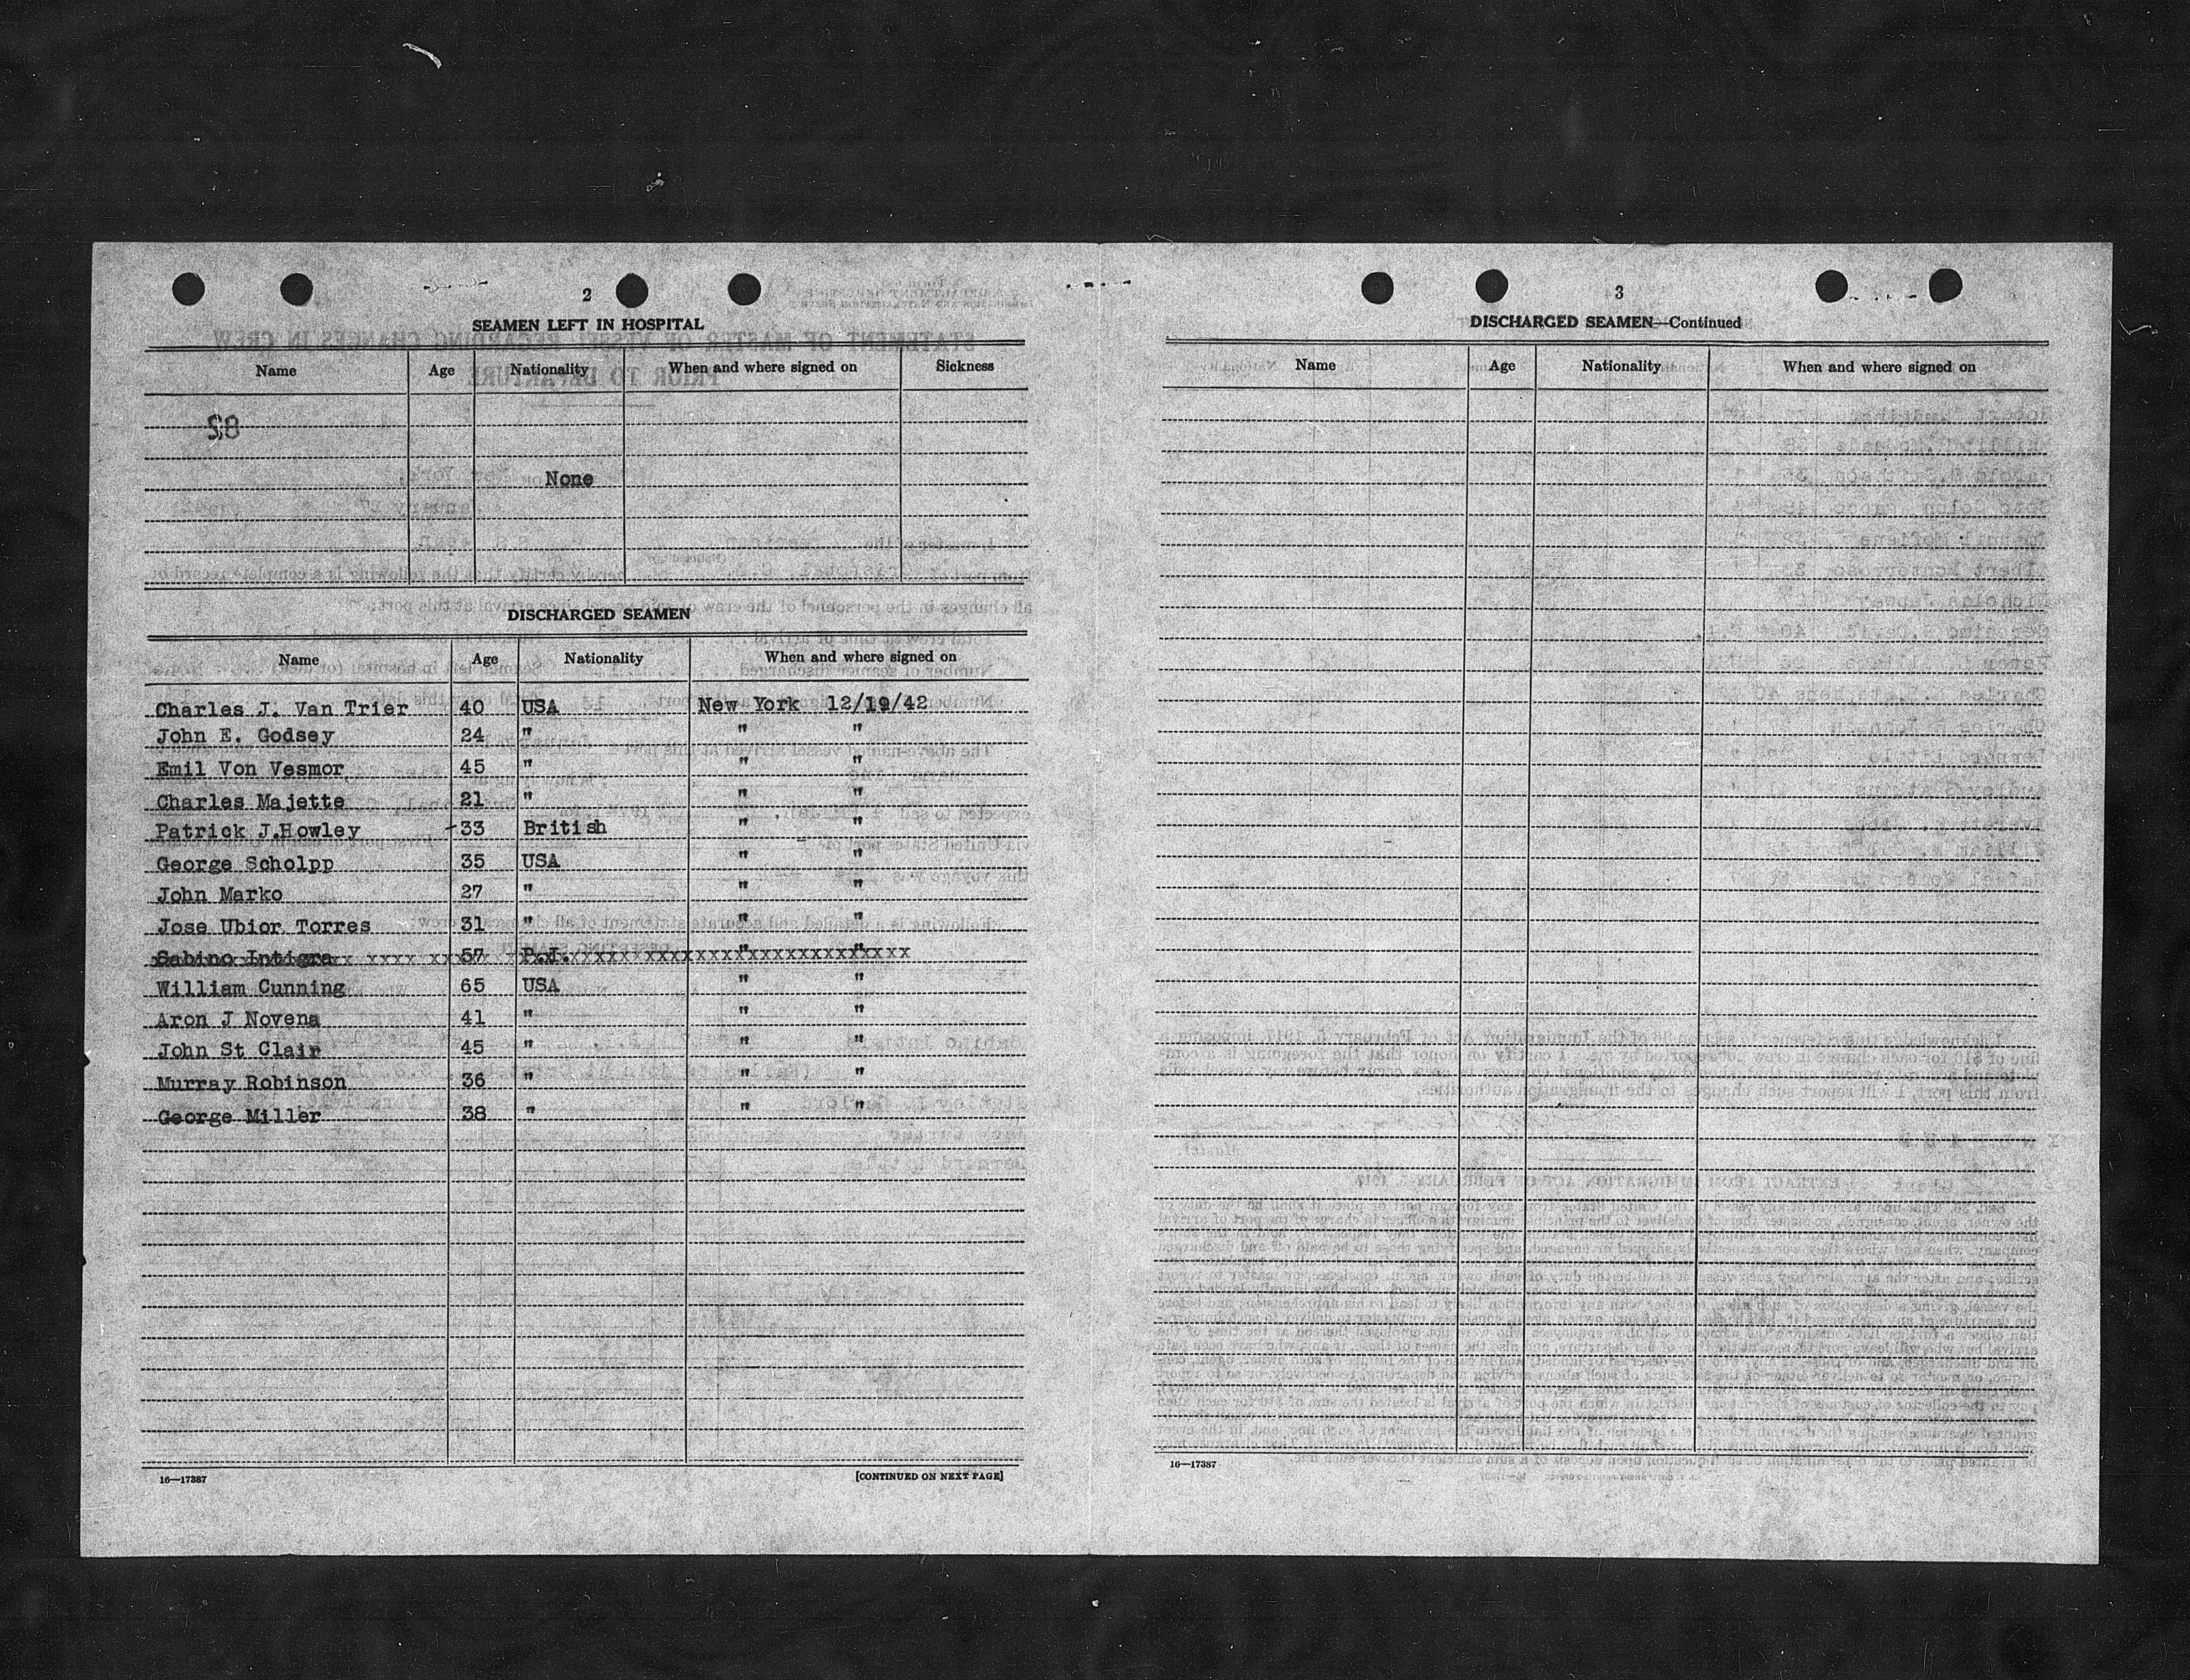 2
SEAMEN LEFT IN HOSPITAL
Name Age Nationality When and where signed on Sickness
82
None
DISCHARGED SEAMEN
Name Age Nationality When and where signed on
Charles J. Van Trier 40 USA New York 12/19/42
John E. Godsey 24 " " "
Emil Von Vesmor 45 " " "
Charles Majette 21 " " "
Patrick J.Howley -33 British " "
George Scholpp 35 USA " "
John Marko 27 " " "
Jose Ubior Torres 31 " " "
Sabino Intigra 57 P.I. " "
William Cunning 65 USA " "
Aron J Novena 41 " " "
John St Clair 45 " " "
Murray Robinson 36 " " "
George Miller 38 " " "
16—17387 [CONTINUED ON NEXT PAGE]
3
DISCHARGED SEAMEN—Continued
Name Age Nationality When and where signed on
16—17387